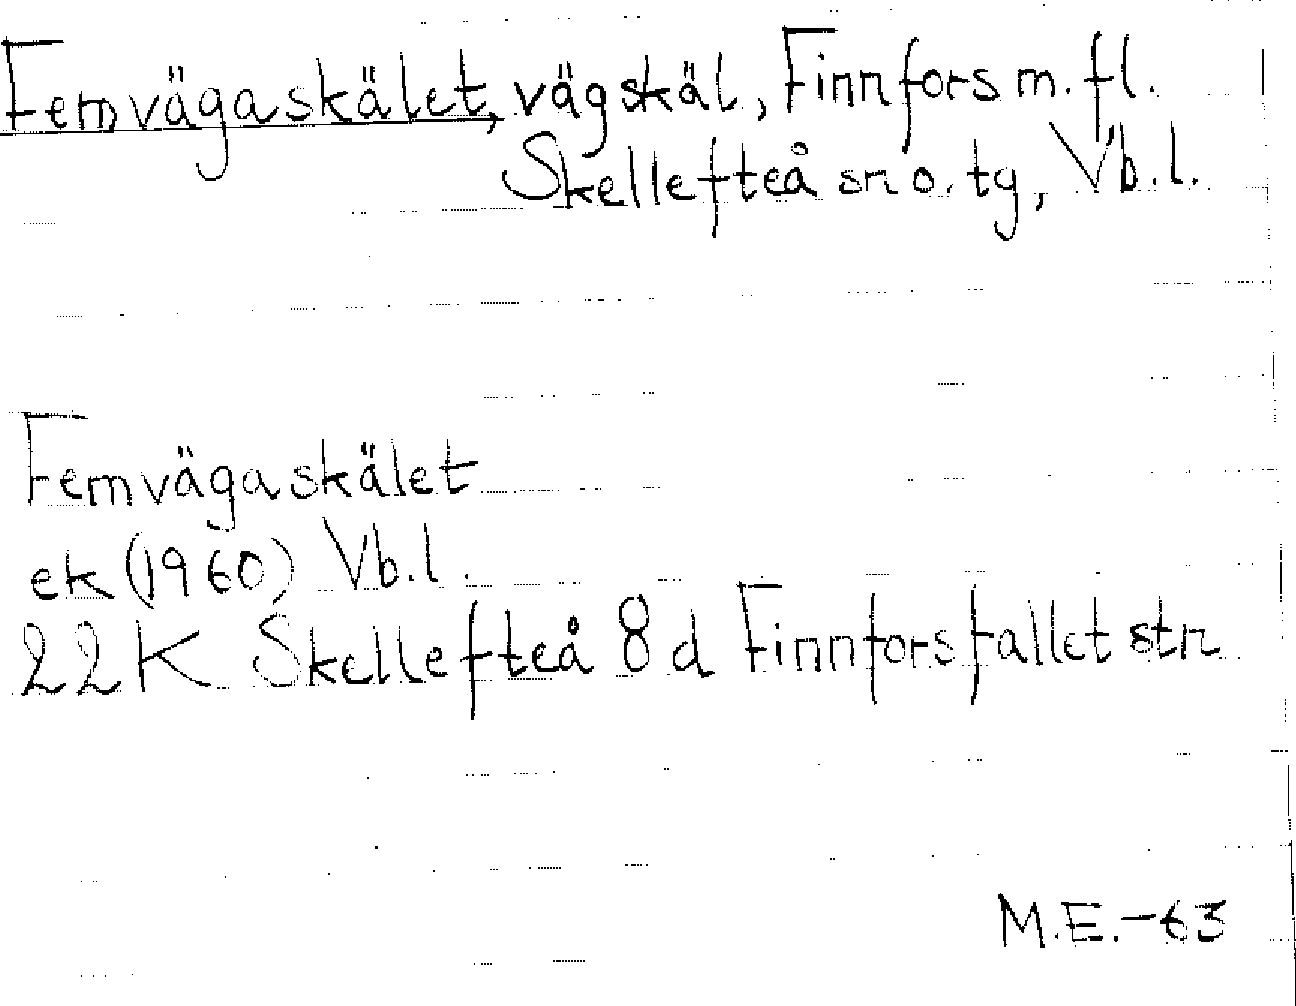 Femvägaskälet, vägskäl, Finnfors m.fl.
Skellefteå sn o. tg, Vb.l.
Femvägaskälet
ek (1960) Vb.l.
22K Skellefteå 8 d Finnforsfallet str
M.E.-63